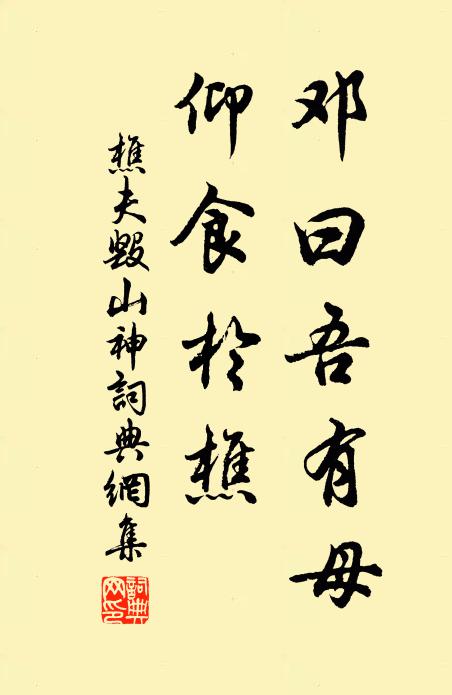 邓曰吾有母
仰食於樵
樵夫毁山神詞典網集
詞典网印